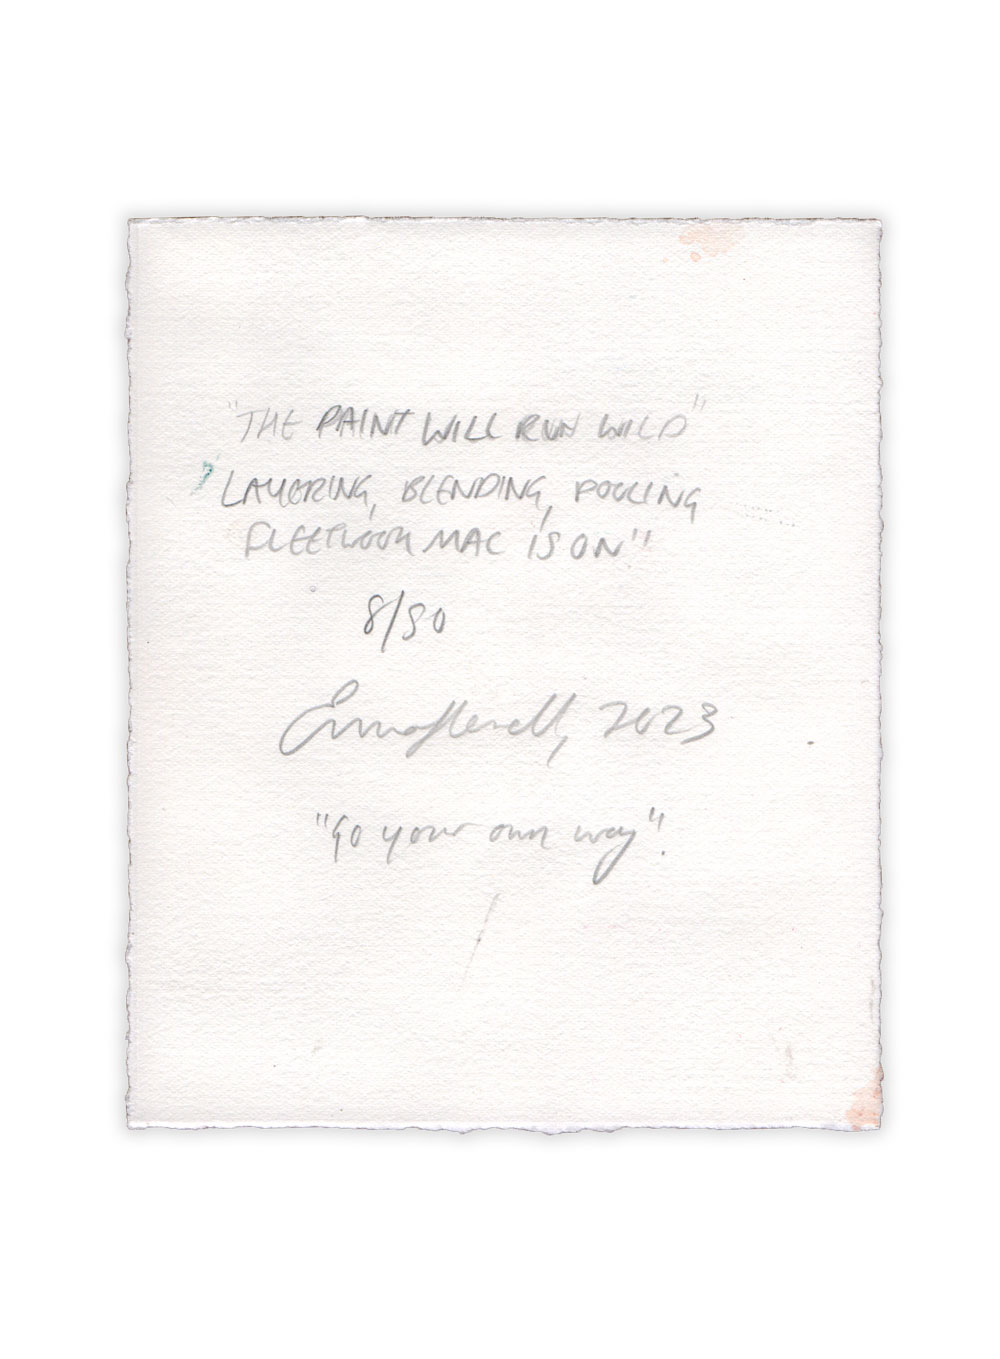 "THE PAINT WILL RUN WILD"
"LAYERING, BLENDING, POOLING
FLEETWOOD MAC IS ON"
8/30
2023
"Go your own way".